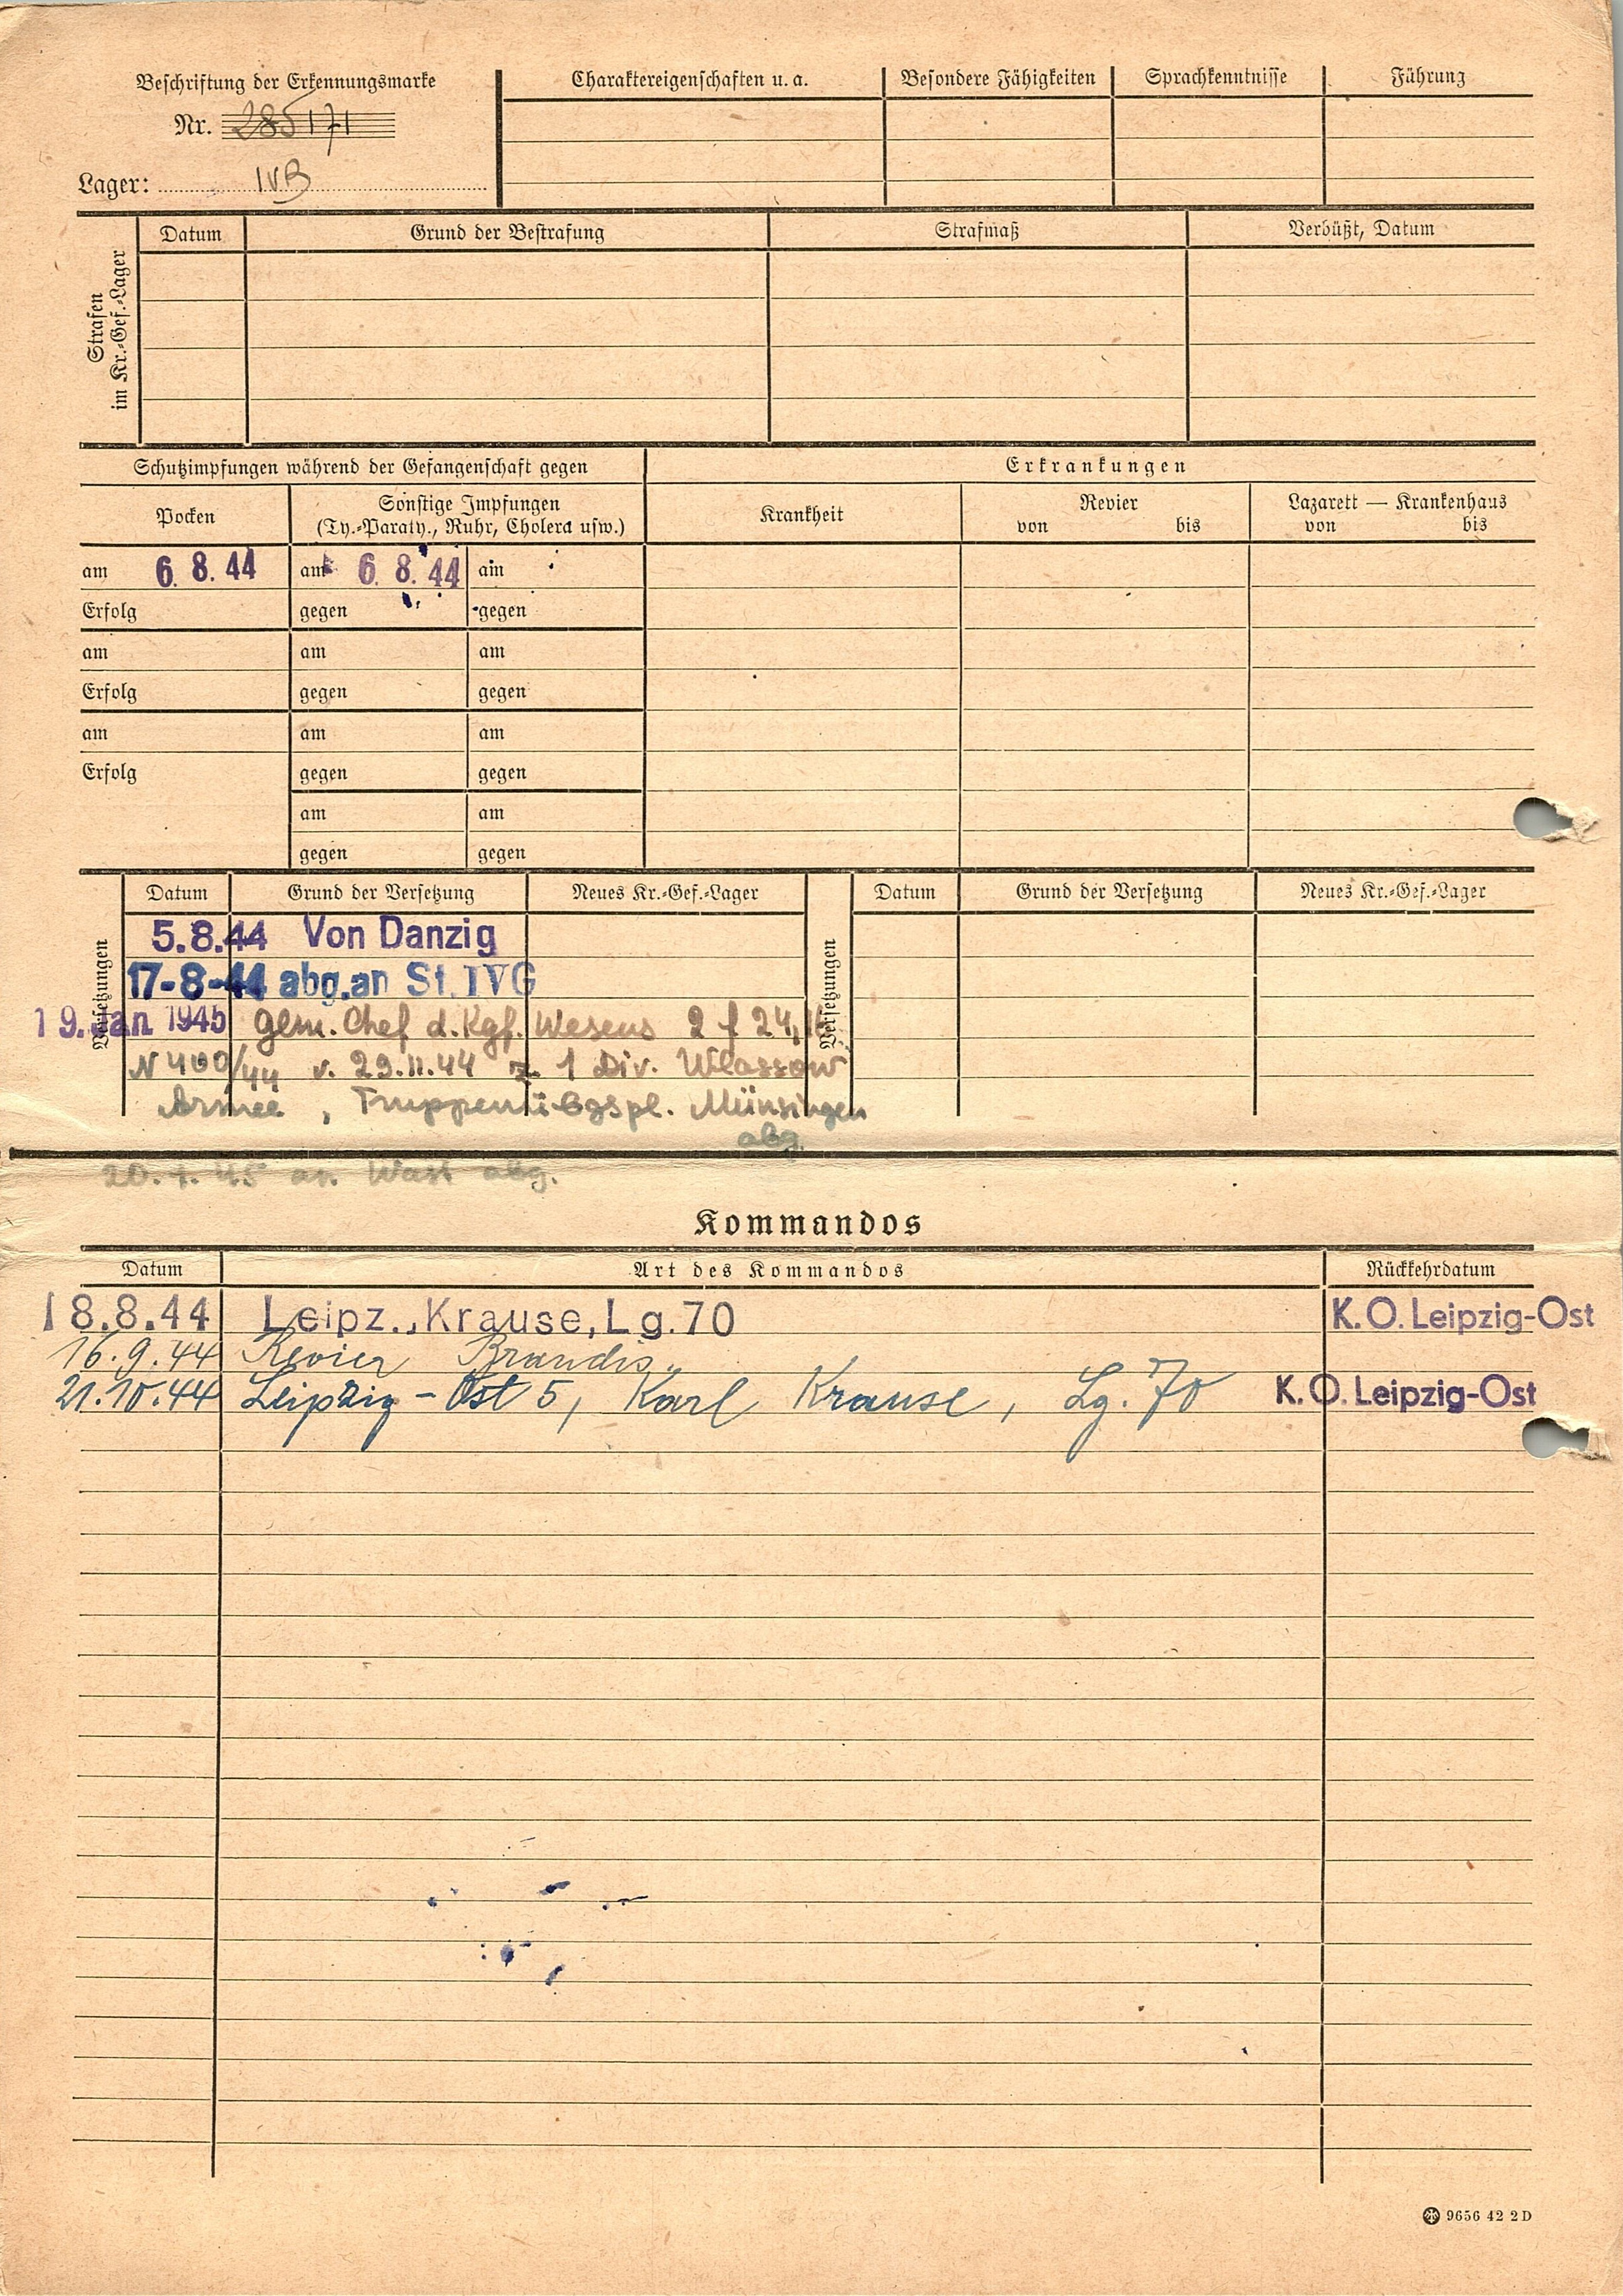 Beschriftung der Erkennungsmarke
Nr. 285171
Lager: IVB
Charaktereigenschaften u. a. Besondere Fähigkeiten Sprachkenntnisse Führung
Strafen
im Kr.-Gef.-Lager
Datum Grund der Bestrafung Strafmaß Verbüßt, Datum
Schutzimpfungen während der Gefangenschaft gegen Erkrankungen
Pocken Sonstige Impfungen
(Ty.-Paraty., Ruhr, Cholera usw.)
Krankheit Revier Lazarett — Krankenhaus
von bis von bis
am 6. 8. 44 am 6. 8. 44 am
Erfolg gegen gegen
am am am
Erfolg gegen gegen
am am am
Erfolg gegen gegen
am am
gegen gegen
Versetzungen Datum Grund der Versetzung Neues Kr.-Gef.-Lager Versetzungen Datum Grund der Versetzung Neues Kr.-Gef.-Lager
5.8.44 Von Danzig
17-8-44 abg.an St. IVG
19. Jan. 1945 gem. Chef d. Kgf. Wesens 2 f 24,
N 400/44 v. 29.11.44 z. 1 Div. Wlassow
Armee, Truppenübgspl. Münsingen
abg.
20. 1. 45 an Wast abg.
Kommandos
Datum Art des Kommandos Rückkehrdatum
18.8.44 Leipz., Krause, Lg. 70 K.O. Leipzig-Ost
16.9.44 Revier Brandis.
21.10.44 Leipzig-Ost 5, Karl Krause, Lg. 70 K.O. Leipzig-Ost
9656 42 2 D